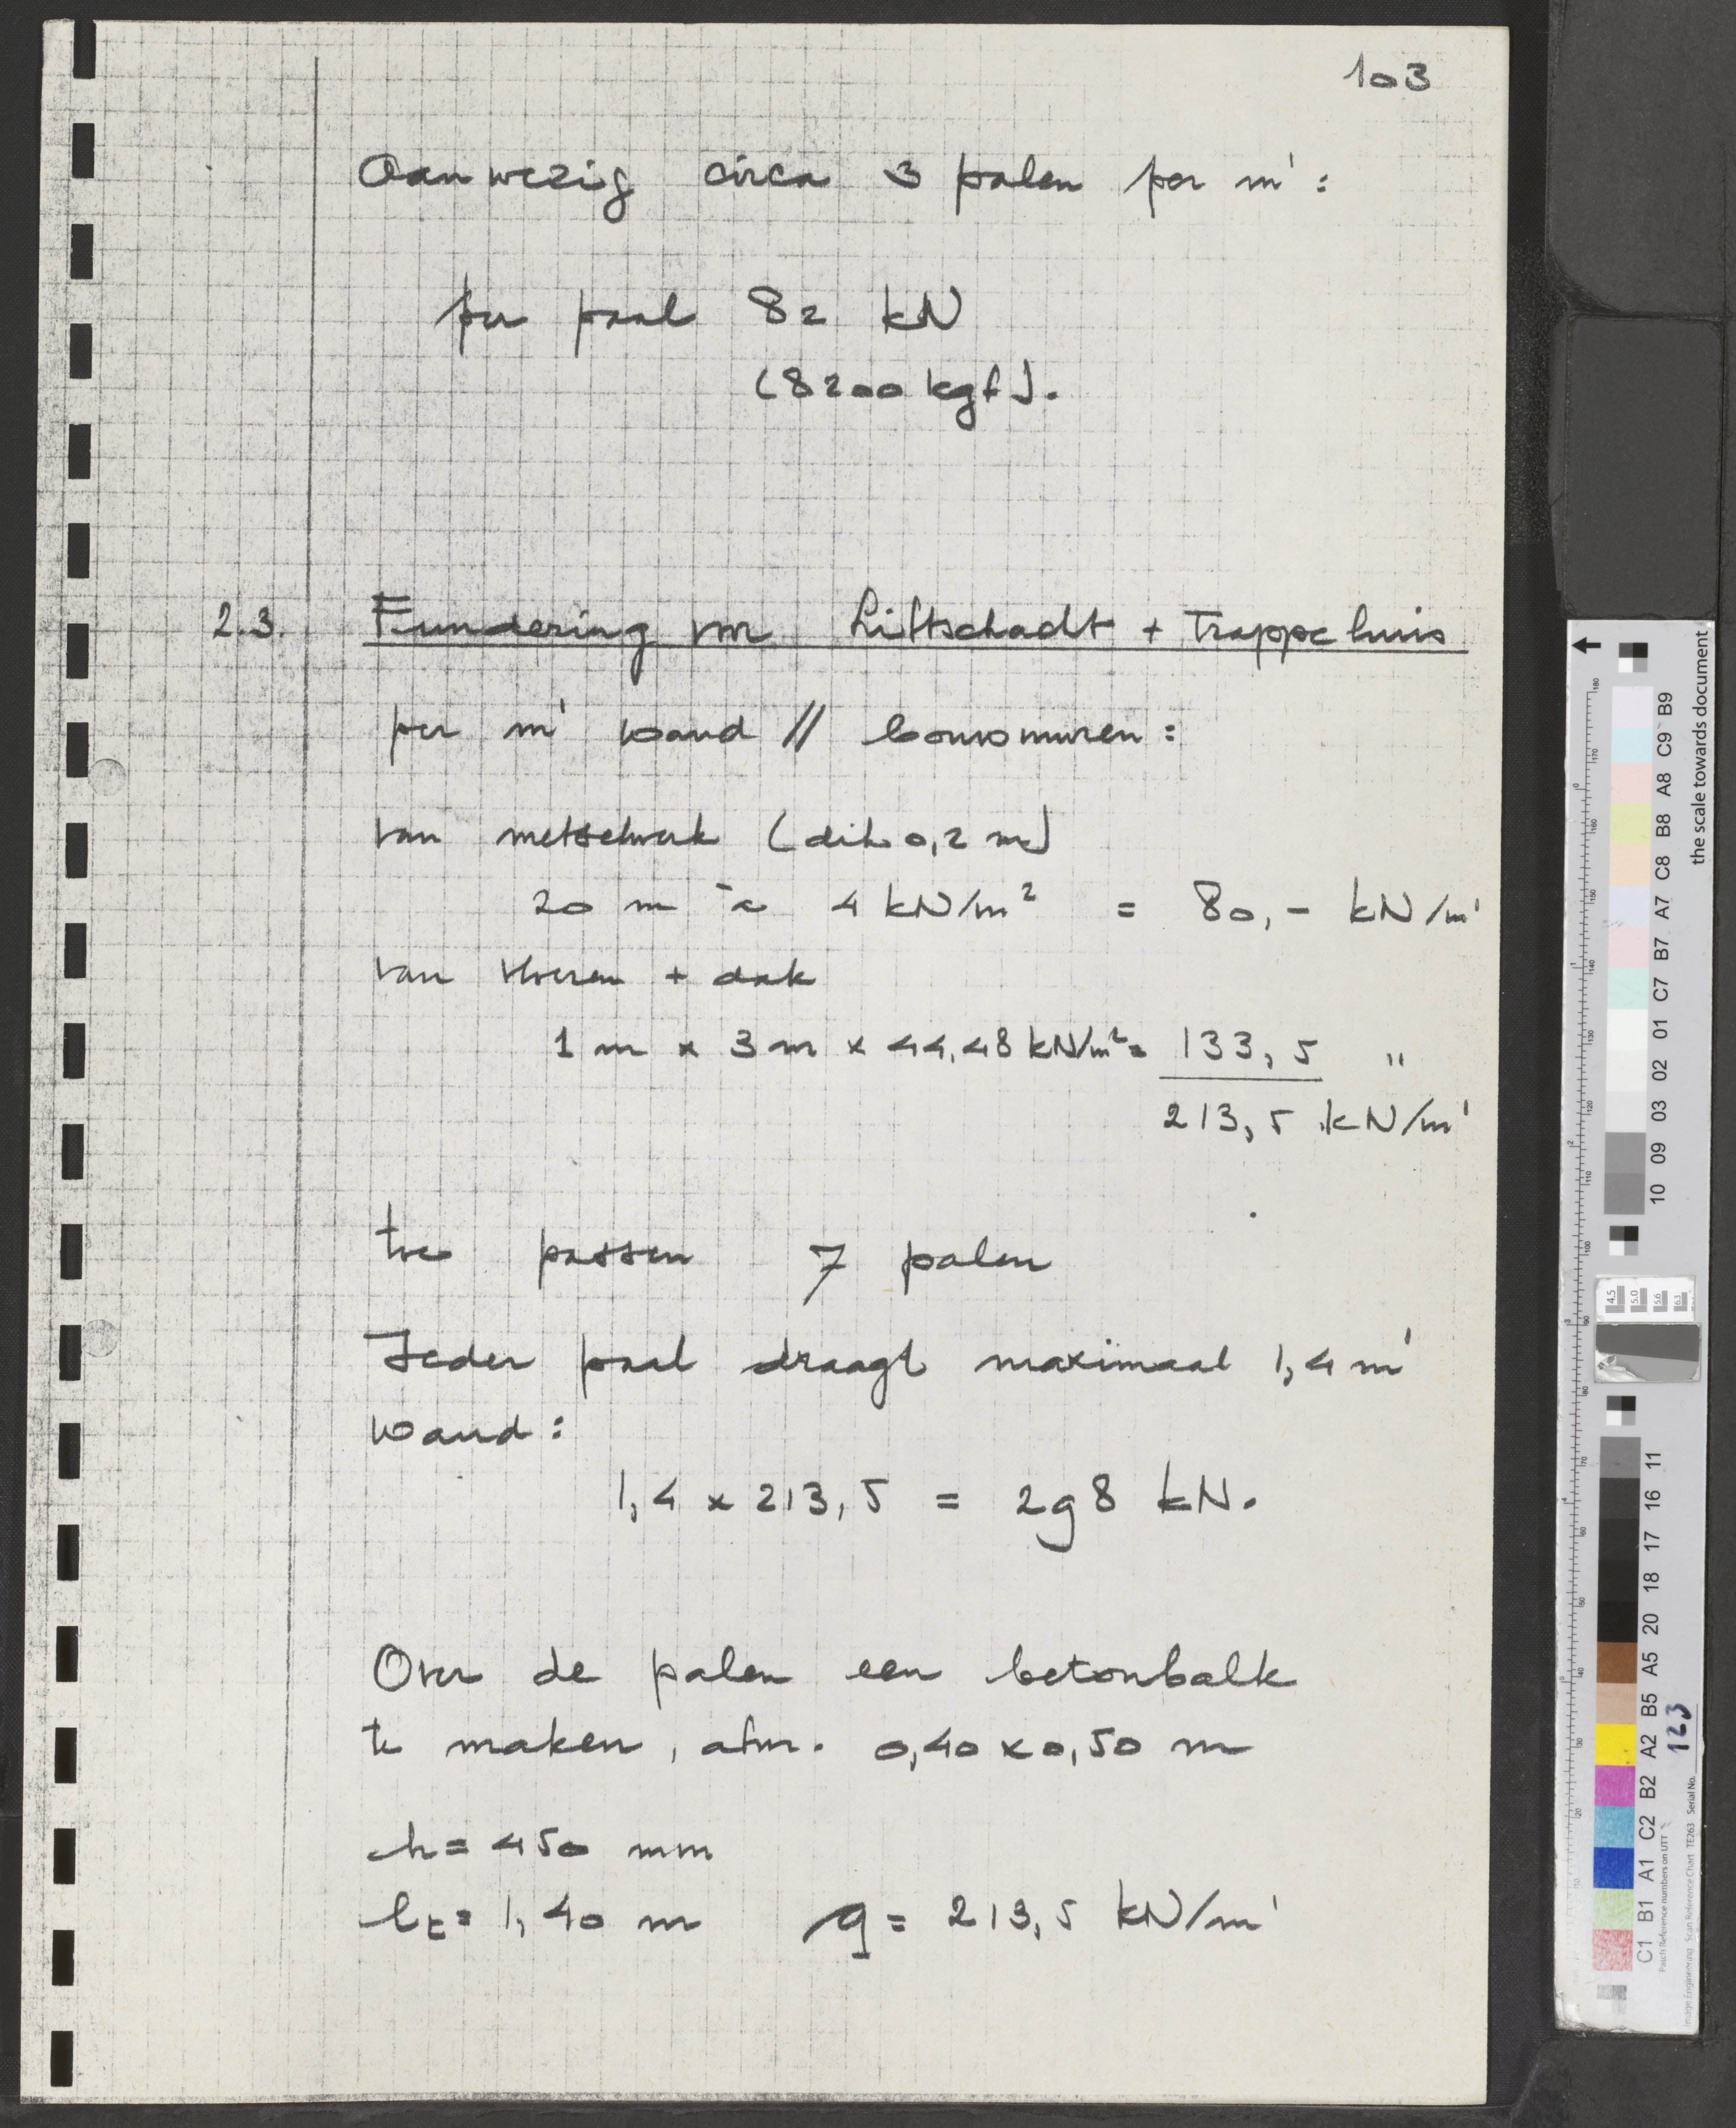 103
Aanwezig circa 3 palen per m' :
per paal 82 kN
(8200 kgf).
2.3. Fundering vor Liftschacht + Trappehuis
per m' wand // bouwmuren :
van metselwerk (dik 0,2 m)
20 m à 4 kN/m² = 80,- kN/m'
van vloeren + dak
1 m x 3 m x 44,48 kN/m² = 133,5 "
213,5 kN/m'
toe passen 7 palen
Ieder paal draagt maximaal 1,4 m'
wand :
1,4 x 213,5 = 298 kN.
Over de palen een betonbalk
te maken, afm. 0,40 x 0,50 m
h = 450 mm
lt = 1,40 m q = 213,5 kN/m'
the scale towards document
C1 B1 A1 C2 B2 A2 B5 A5 20 18 17 16 11
10 09 03 02 01 C7 B7 A7 C8 B8 A8 C9 B9
Patch Reference numbers on UTT
Image Engineering Scan Reference Chart TE263 Serial No. 123